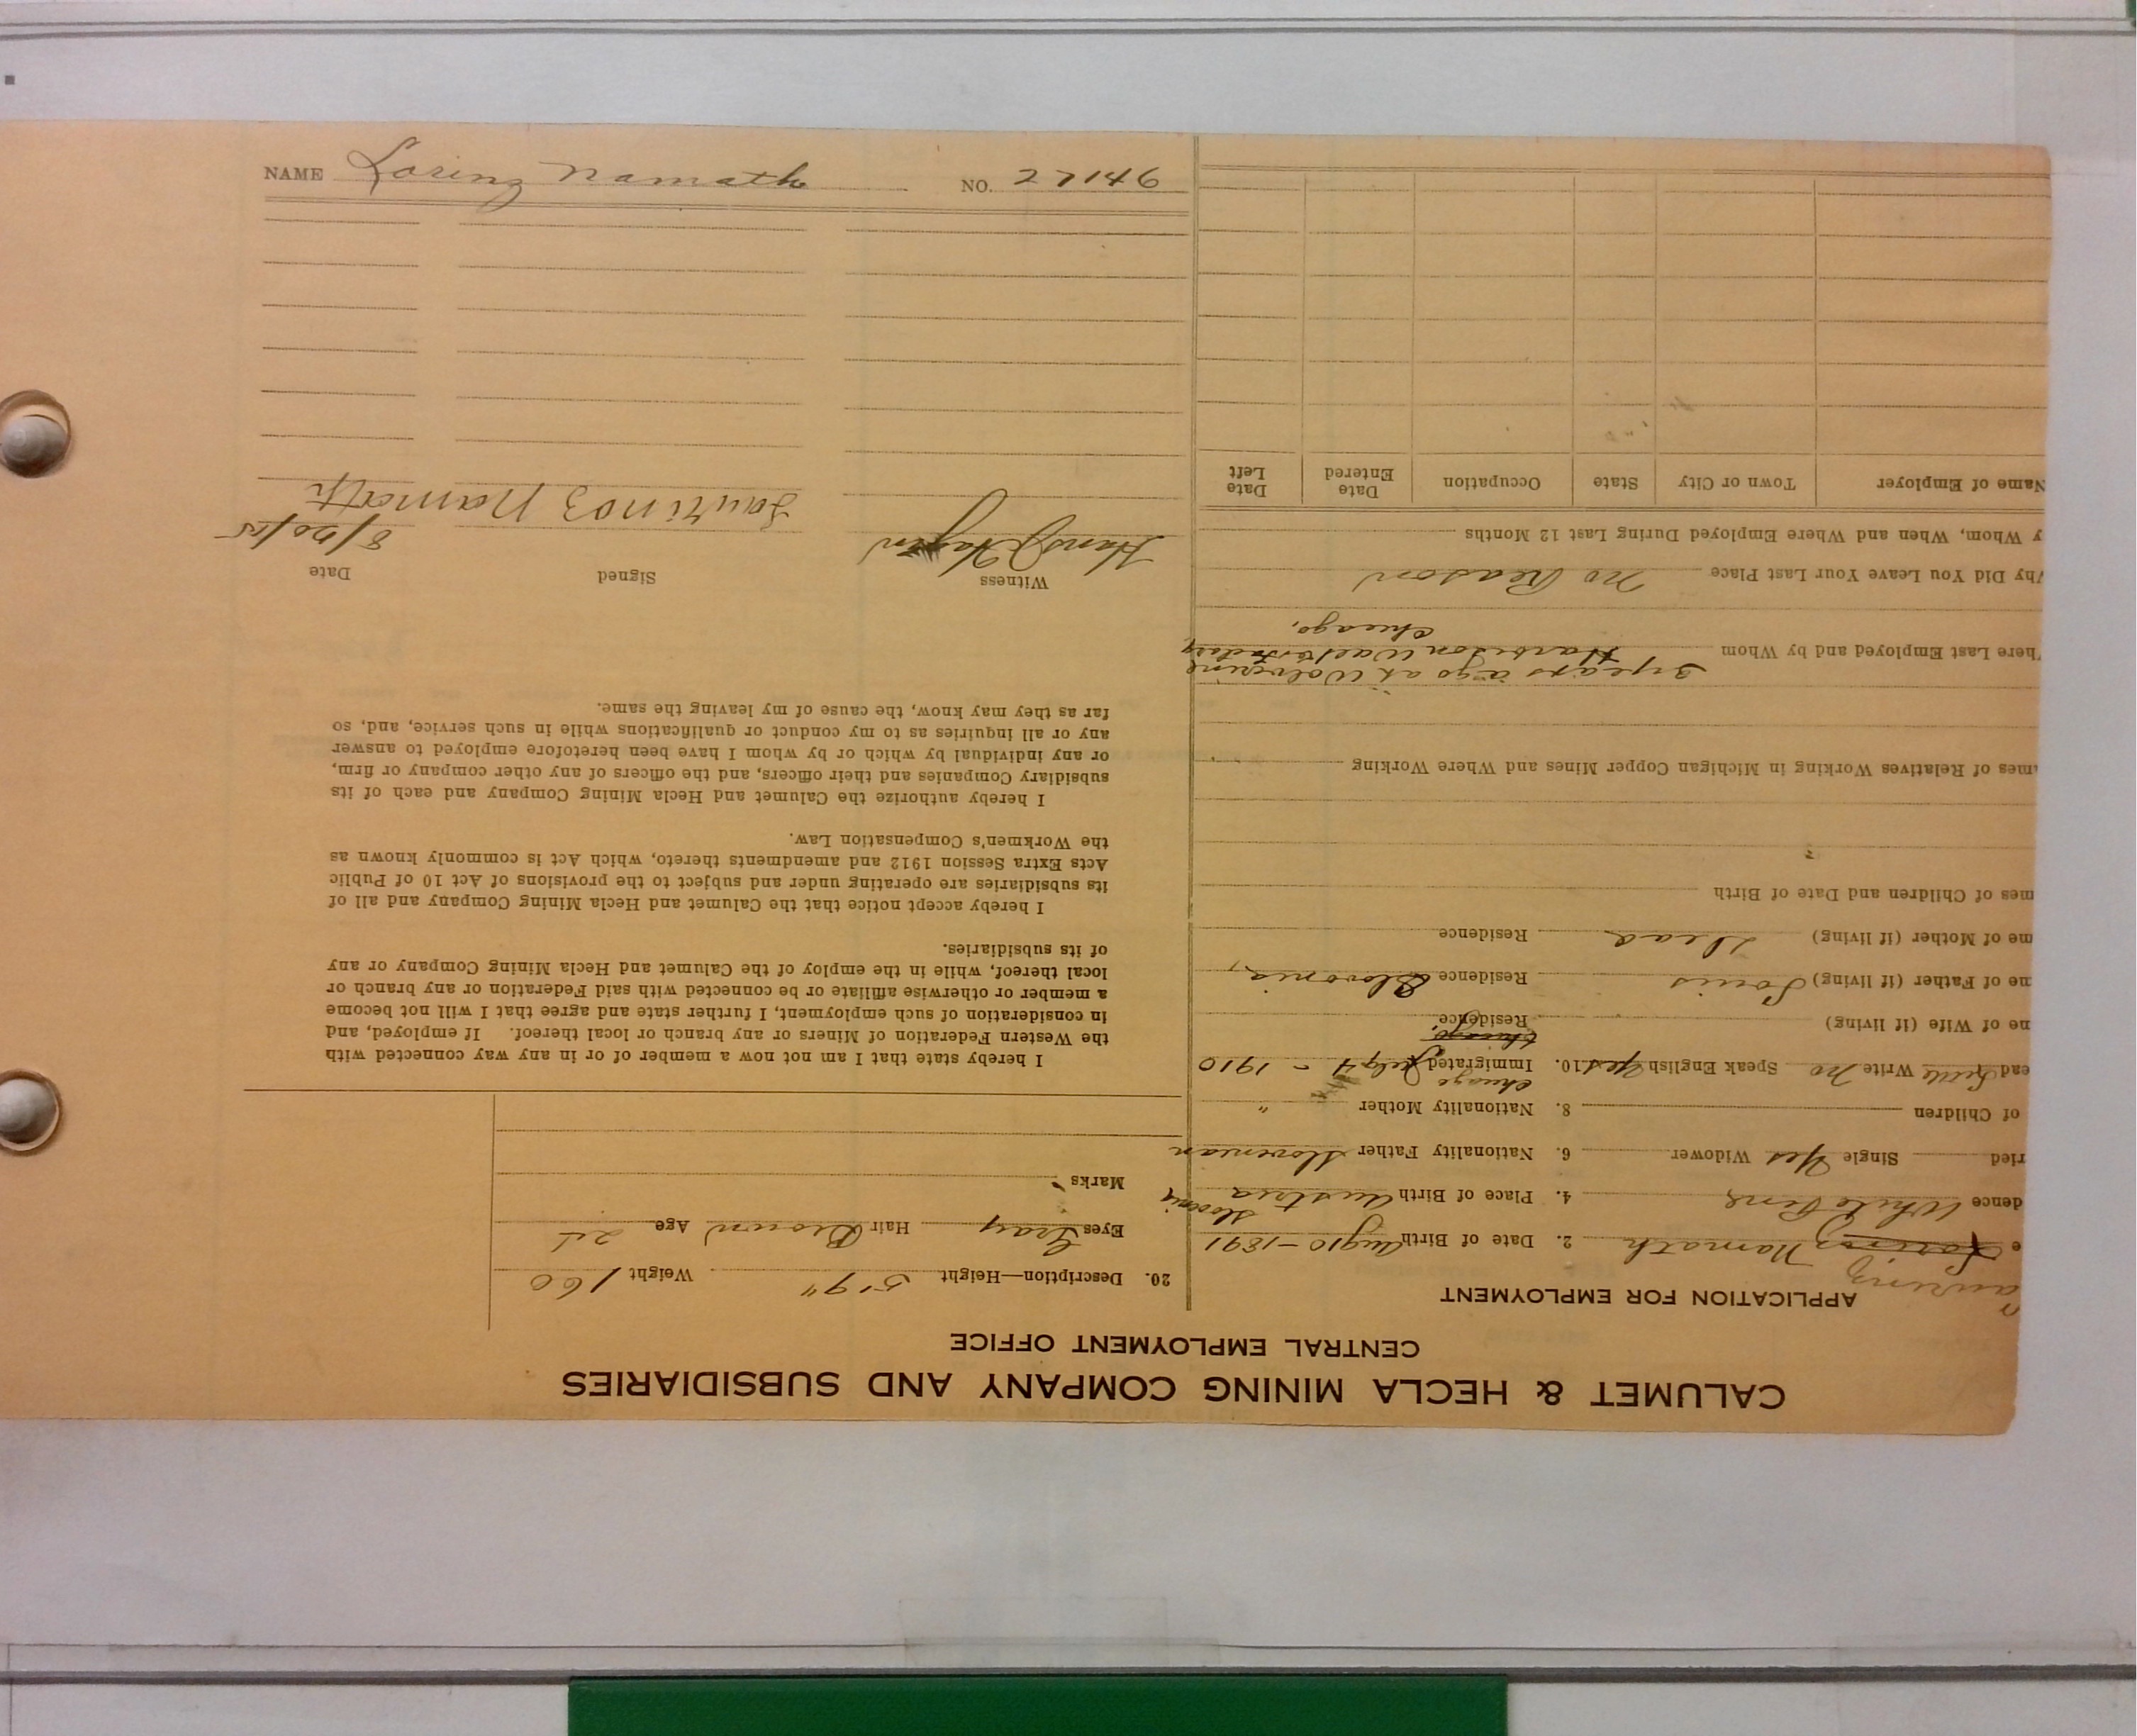 CALUMET & HECLA MINING COMPANY AND SUBSIDIARIES
CENTRAL EMPLOYMENT OFFICE
APPLICATION FOR EMPLOYMENT
e Namath 2. Date of Birth Aug 10 - 1891
dence White Pine 4. Place of Birth Austria
ried Single Yes Widower 6. Nationality Father Slovenian
of Children 8. Nationality Mother "
Chicago
ead Little Write No Speak English Yes 10. Immigrated July 4 - 1910
Chicago
ne of Wife (if living) Residence
ne of Father (if living) Louis Residence Slovonia,
me of Mother (if living) Dead Residence
mes of Children and Date of Birth
mes of Relatives Working in Michigan Copper Mines and Where Working
3 years ago at Wolverine
here Last Employed and by Whom Harbison Walker
Chicago.
hy Did You Leave Your Last Place No Reason
y Whom, When and Where Employed During Last 12 Months
Name of Employer Town or City State Occupation Date Entered Date Left
20. Description—Height 5'9" Weight 160
Eyes Gray Hair Brown Age
Marks
I hereby state that I am not now a member of or in any way connected with
the Western Federation of Miners or any branch or local thereof. If employed, and
in consideration of such employment, I further state and agree that I will not become
a member or otherwise affiliate or be connected with said Federation or any branch or
local thereof, while in the employ of the Calumet and Hecla Mining Company or any
of its subsidiaries.
I hereby accept notice that the Calumet and Hecla Mining Company and all of
its subsidiaries are operating under and subject to the provisions of Act 10 of Public
Acts Extra Session 1912 and amendments thereto, which Act is commonly known as
the Workmen's Compensation Law.
I hereby authorize the Calumet and Hecla Mining Company and each of its
subsidiary Companies and their officers, and the officers of any other company or firm,
or any individual by which or by whom I have been heretofore employed to answer
any or all inquiries as to my conduct or qualifications while in such service, and, so
far as they may know, the cause of my leaving the same.
Witness Signed Date
Namath 8/20/15
NAME Lorinz Namath NO. 27146